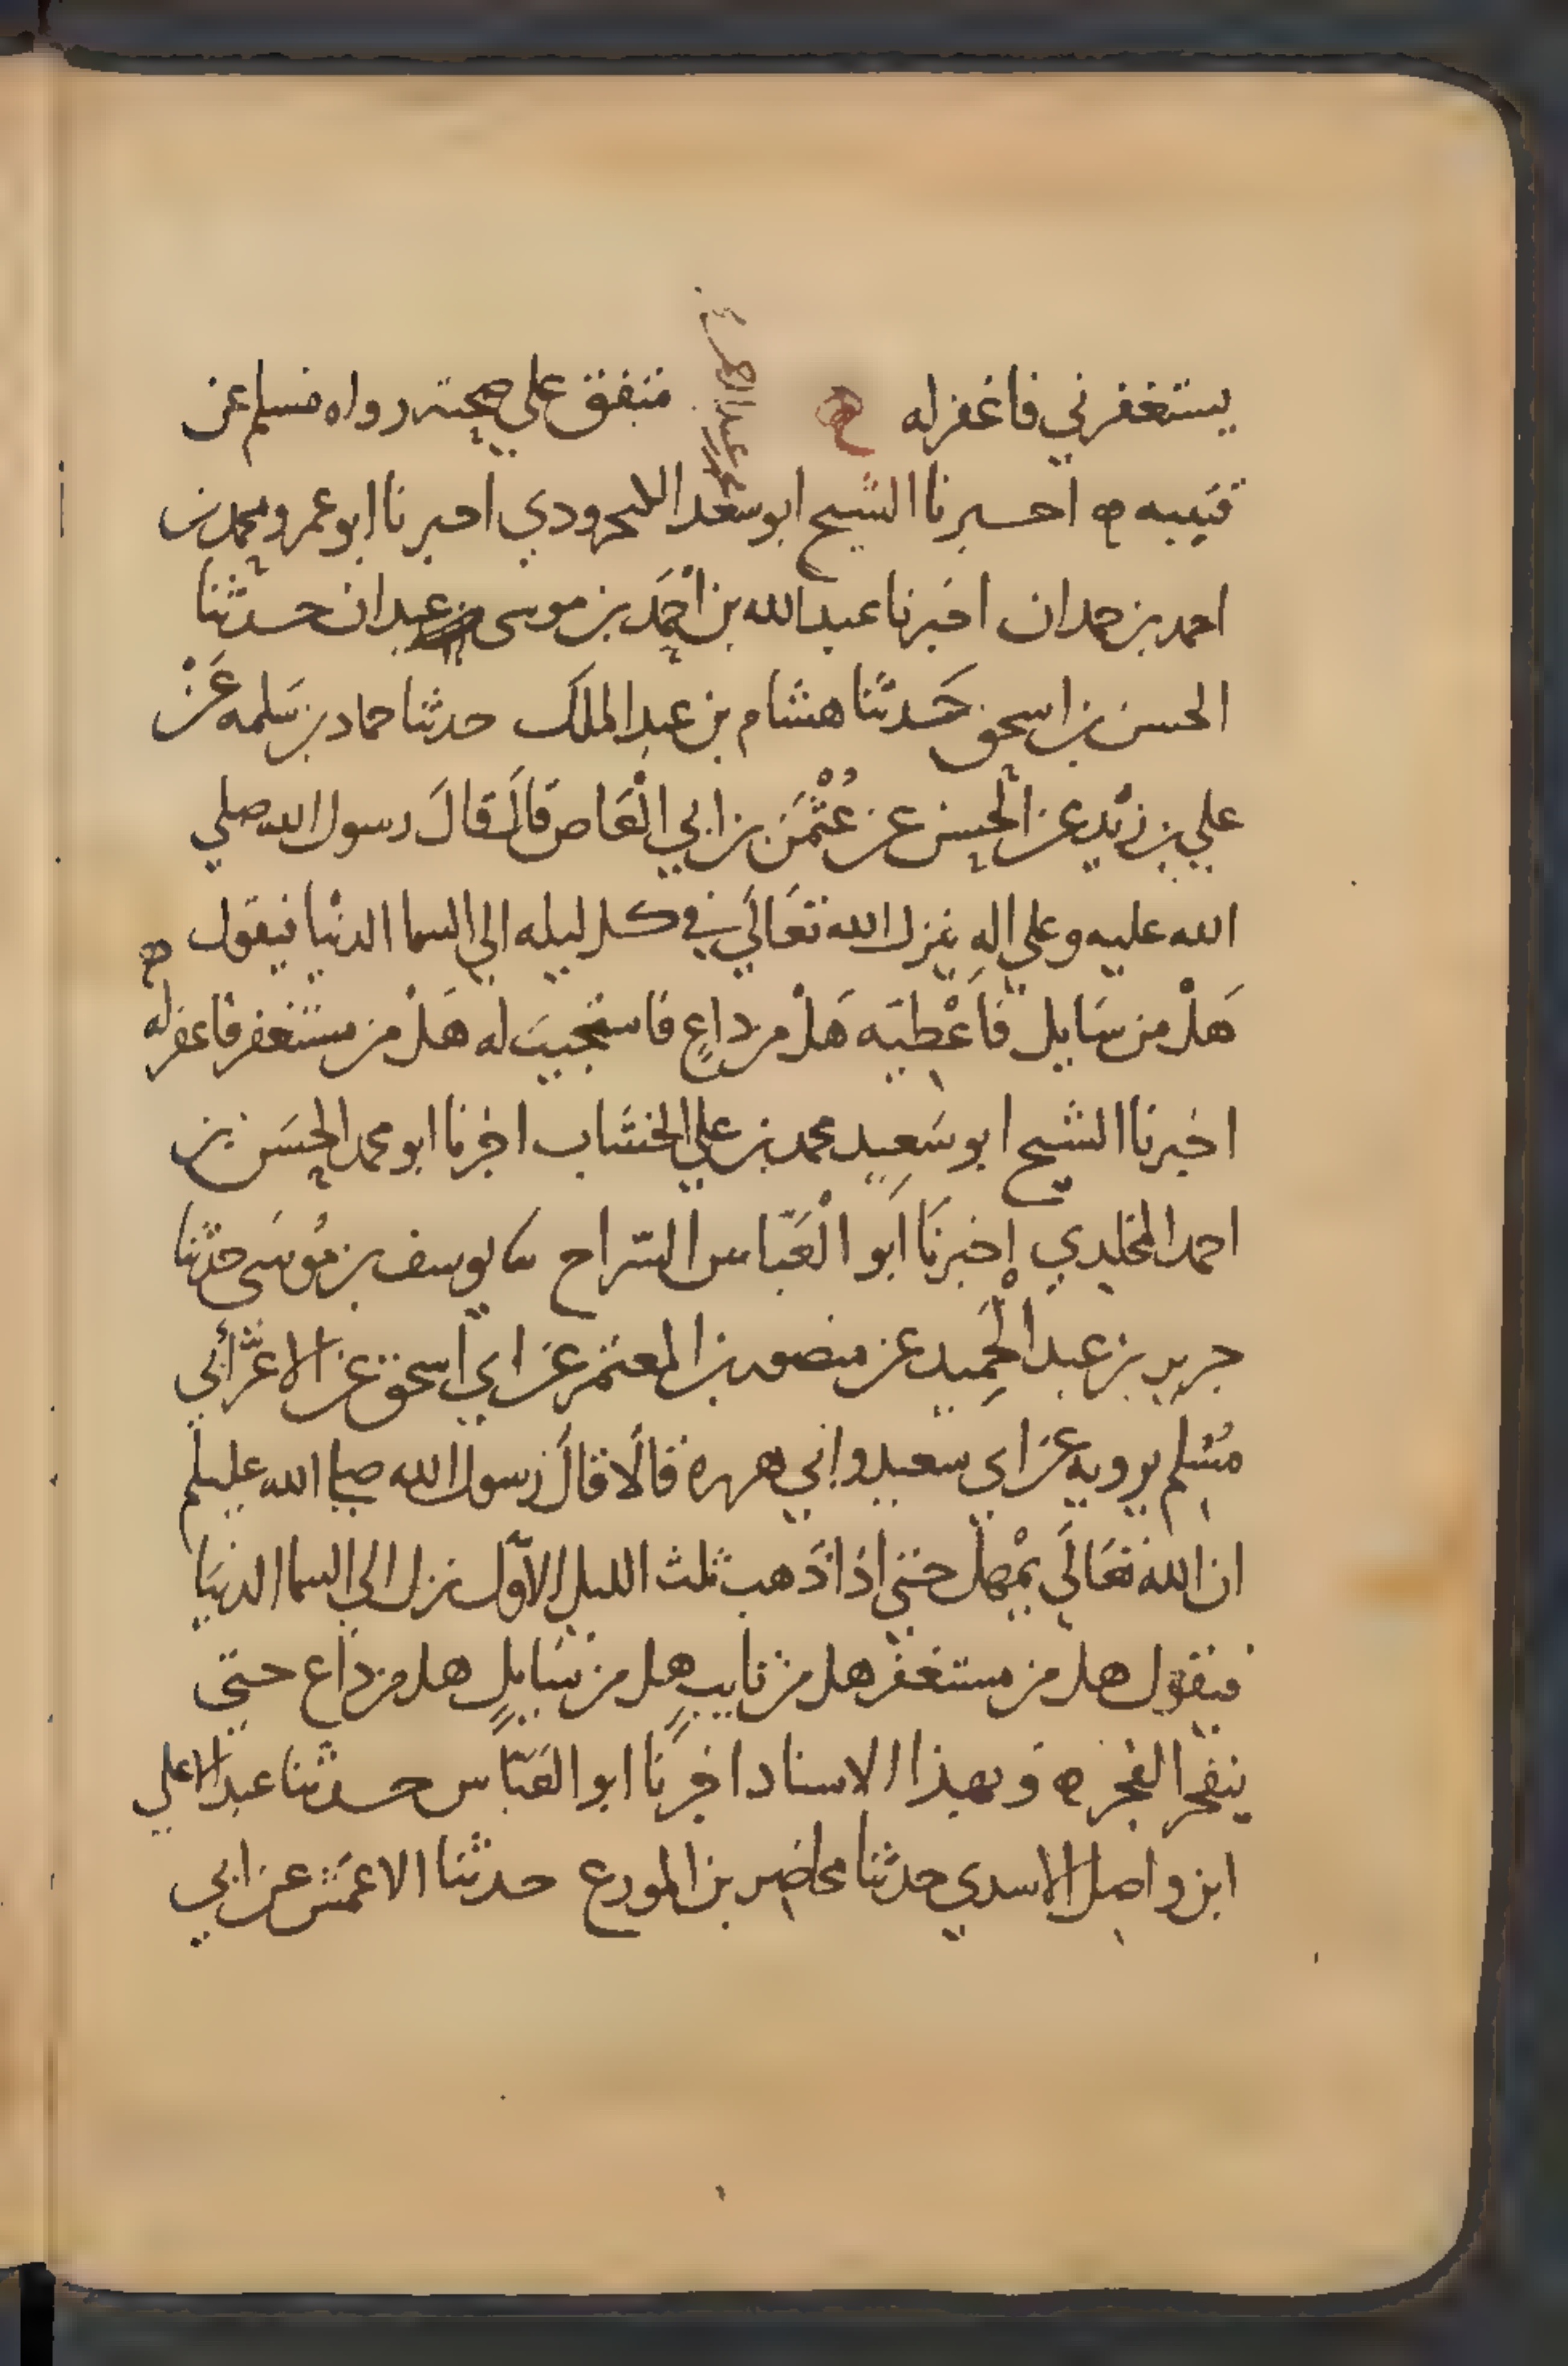 يستغفرني فاغفر له متفق علي صحته رواه مسلم عن
قتيبه ه اخبرنا الشيخ ابو سعد الكنجرودي اخبرنا ابو عمرو محمد بن
احمد بن حمدان اخبرنا عبد الله بن احْمَد بن موسى عبدان حدثنا
الحسن بن اسحق حَدثنا هشام بن عبد الملك حدثنا حماد بن سَلمه عَنْ
علي بن زيْد عن الْحسن عن عُثْمَن بن ابي الْعَاص قالَ قالَ رسول الله صلي
الله عليه وعلي اله ينزل الله تعَالَي في كل ليله الي السما الدنْيا فيقول
هَلْ من سَايل فَاعْطيَه هَلْ من داعٍ فاستجيبَ له هَلْ من مستغفر فاغفر له
اخبرنا الشيخ ابو سَعِيد محمد بن علي الخشاب اخبرنا ابو محمد الحسَن بن
احمد المخلدي اخبرنَا اَبو الْعَبّاس السّراج سا يوسف بن مُوسَى حدثنا
جرير بن عبد الْحَمِيد عن منصور بن المعتمر عن ابي اسحق عن الاغَرّ أبي
مُسْلم يرويه عن ابي سعيد وابي هريره قالَا قالَ رسول الله صلي الله عليه وسلم
ان الله تعَالَي يمْهل حتي اذا ذَهب ثلث الليل الاَوّل نزل الي السما الدنيَا
فيقول هل من مستغفر هل من تايبٍ هل من سَايلٍ هل من داع حتي
ينفجر الفجر ه وَبهذا الاسناد اخبرنَا ابو العَبّاس حدثنا عبد الاعلي
ابن واصل الاسدي حدثنا محاضر بن المورع حدثنَا الاعمَش عن ابي